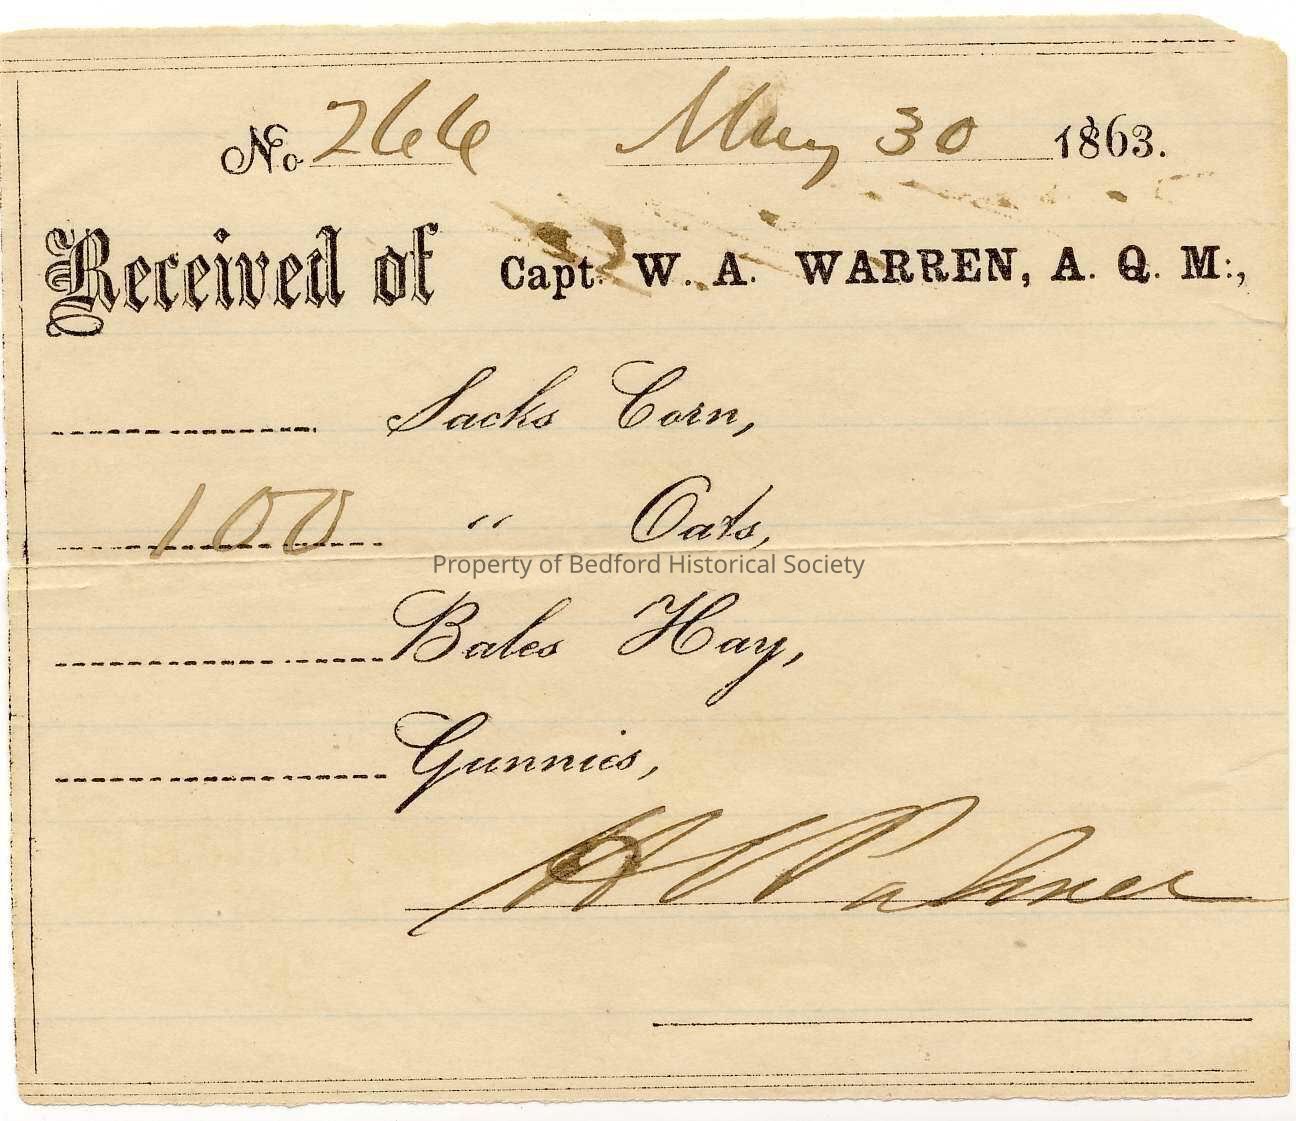 No. 266 May 30 1863.
Received of Capt. W. A. WARREN, A. Q. M.,
Sacks Corn,
100 " Oats,
Property of Bedford Historical Society
Bales Hay,
Gunnies,
Palmer